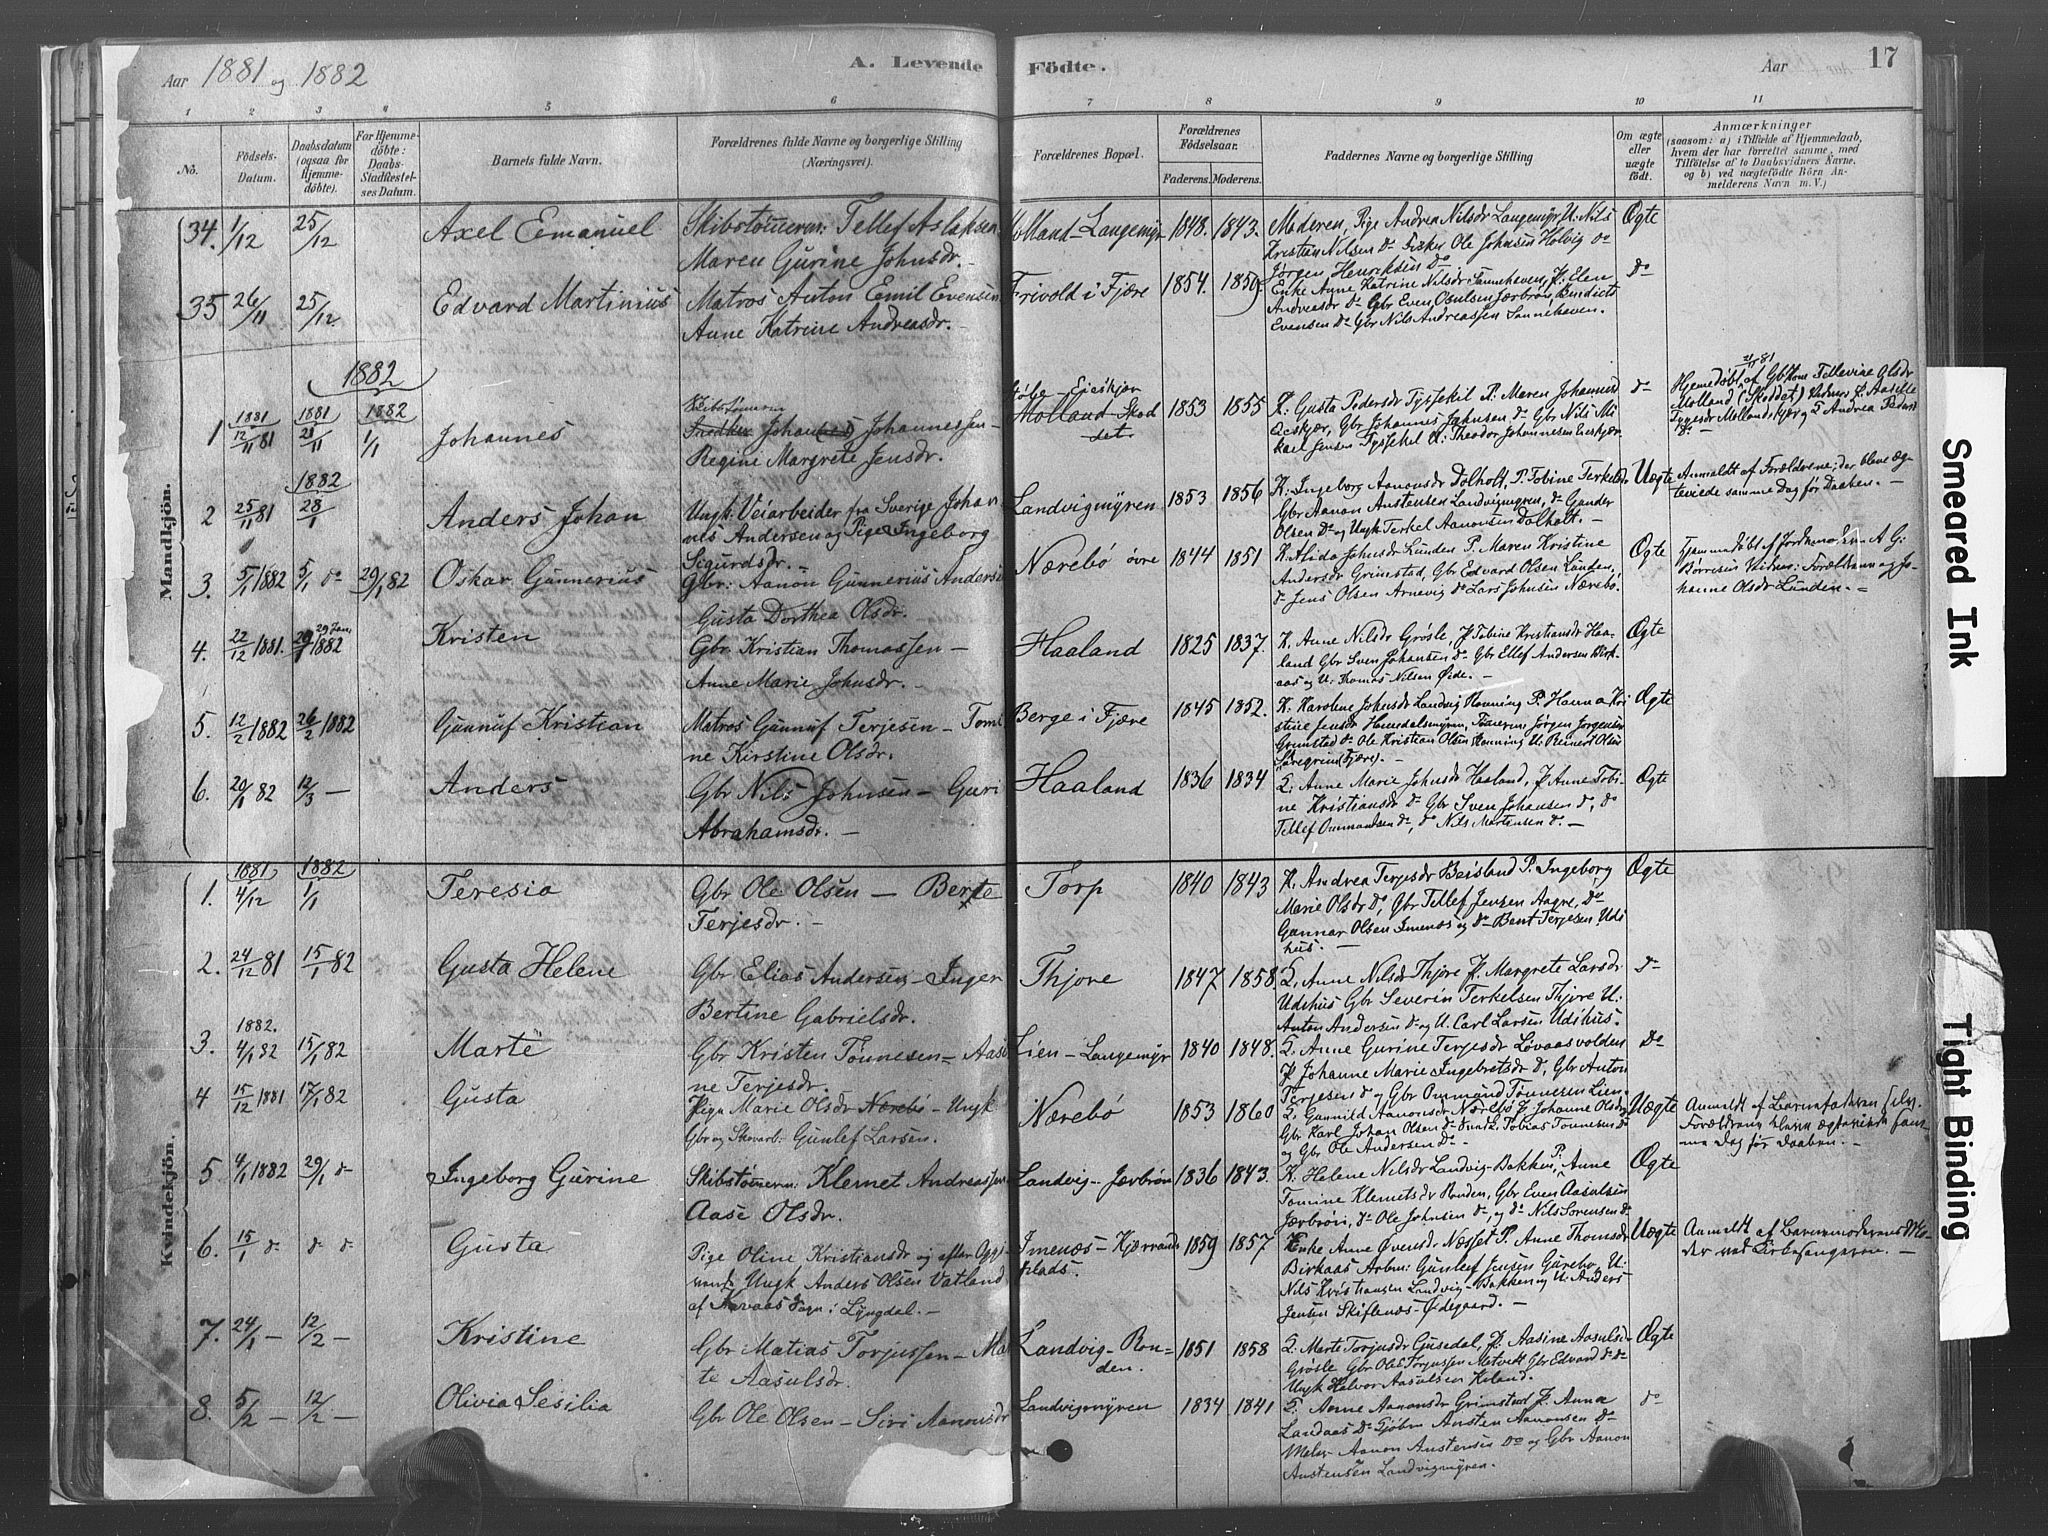 Aar 1881 og 1882
A. Levende Födte.
Aar
17
1 2 3 4 5 6 7 8 9 10 11
No.
Födsels-
Datum.
Daabsdatum
(ogsaa for
hjemme-
döbte).
For Hjemme-
döbte:
Daabs-
Stadfæstel-
ses Datum.
Barnets fulde Navn.
Forældrenes fulde Navne og borgerlige Stilling
(Næringsvei).
Forældrenes Bopæl.
Forældrenes
Födselsaar.
Faderens. Moderens.
Faddernes Navne og borgerlige Stilling
Om ægte
eller
uægte
født.
Anmærkninger
(saasom: a) i Tilfælde af Hjemmedaab,
hvem der har forrettet samme, med
Tilföielse af to Daabsvidners Navne,
og b) ved uægtefödte Börn An-
melderens Navn m. V.)
Mandkjön.
34. 1/12 25/12 Axel Emanuel
Skibstömmerm: Tellef Aslaksen
Maren Gurine Johnsdr. –
Molland–Langemyr 1848. 1843.
Moderen, Pige Andrea Nilsdr Langemyr U: Nils
Kristian Nilsen do Fisker Ole Johnsen Holvig do
Jørgen Henriksen do
Ægte
35 26/11 25/12 Edvard Martinius
Matros Anton Emil Evensen
Anne Katrine Andreasdr. –
Frivold i Fjære 1854. 1850
Enke Anne Katrine Nilsdr Sannehaven, P. Elen
Andreasdr do Gbr Even Osulsen Jærbrön Bendicte
Evensen do Gbr Nils Andreassen Sannehaven.
do
1882
1 1881 12/11 81 1881 21/11 1882 1/1 Johannes
Skibstömmerm
Johannes Johannessen –
Regine Margrete Jensdr.
Eieskjær
Molland Skod
det 1853 1855
K: Gusta Pedersdr Tyssekil P. Maren Johannesd
Eieskjær, Gbr Johannes Johnsen do Gbr Nils Mi
kael Jensen Tyssekil U: Theodor Johannesen Eieskjær
do
21/11 81
Hjemedöbt af Gbkone Tellevine Olsdr
Molland (Skoddet) Vidner P. Aaselle
Tygesdr Mollandskjær og S Andrea Pedersd
do –
2 25/11 81 1882 28/1 Anders Johan
Ungk: Veiarbeider fra Sverige Johan
nes Andersen og Pige Ingeborg
Sigurdsdr.
Landvigmyren 1853 1856
K: Ingeborg Aanonsdr Dolholt, P. Tobine Terkelsdr
Gbr Aanon Austensen Landvigmyren, do Gunder
Olsen do Ungk Terkel Aanonsen Dolholt. –
Uegte
Anmeldt af Forældrene; der bleve æg-
teviede samme Dag før Daaben. –
3. 5/1 1882 5/1 do 29/1 82 Oskar Gunnerius
Gbr: Aanon Gunnerius Anders
Gusta Dorthea Olsdr.
Nærebö övre 1844 1851
K. Alida Johnsdr Lunden P. Maren Kristine
Andersdr Grimstad, Gbr Edvard Olsen Lunden,
do Jens Olsen Arnevig do Lars Johnsen Nærebö.
Ægte
Hjemmedöbt af Jordemoderen A G:
Börresen Vidner: Forældrene og Jo-
hanne Olsdr Lunden. –
4. 22/12 1881. 29 Jan. 1882 Kristen
Gbr Kristian Thomassen –
Anne Marie Johnsdr. –
Haaland 1825 1837.
K. Anne Nilsdr Grösle, P. Tobine Kristiansdr Haa-
land Gbr Sven Johansen do Gbr Ellef Andersen Birk-
aas og U: Thomas Nilsen Öide. –
Ægte
5. 12/2 1882 26/2 1882 Gunnuf Kristian
Matros Gunnuf Terjesen – Tomi
ne Kirstine Olsdr.
Berge i Fjære 1845 1852.
K. Karoline Johnsdr Landvig Rönning P. Hanna Kri
stine Jensdr Homedalsmyren, Jörgen Jorgensen
Grimstad do Ole Kristian Olsen Rönning U: Reinert Olsen
(Fjære).
Ægte
6. 20/1 82 12/3 – Anders
Gbr Nils Johnsen – Guri
Abrahamsdr. –
Haaland 1836 1834
S: Anne Marie Johnsdr Haaland, P. Anne Tobi-
ne Kristiansdr do Gbr Sven Johansen do, do
Tellef Ommundsen do, do Nils Mortensen do. –
Ægte
Kvindekjön.
1. 1881 4/12 1882 1/1 Teresia
Gbr Ole Olsen – Berte
Terjesdr. –
Torp 1840 1843
K. Andrea Terjesdr Beisland P. Ingeborg
Marie Olsdr do, Gbr Tellef Jensen Aagre, do
Gunnar Olsen Imenæs og do Bent Terjesen Uds
hus. –
Ægte
2. 24/12 81 15/1 82 Gusta Helene
Gbr Elias Andersen – Inger
Bertine Gabrielsdr.
Thjore 1847 1858
S. Anne Nilsdr Thjore P. Margrete Larsdr
Udihus Gbr Severin Terkelsen Thjore U:
Anton Andersen do og U. Carl Larsen Udihus.
do
3. 1882. 4/1 82 15/1 82 Marte
Gbr Kristen Tönnesen – Aaso
ne Terjesdr.
Lien–Langemyr 1840 1848.
S. Anne Gurine Terjesdr Lovaasvolden
P. Johanne Marie Ingebretsdr do, Gbr Anton
Terjesen do og Gbr Ommund Tönnesen Lien.
do
4 15/12 1881 17/1 82 Gusta
Pige Marie Olsdr Nærebö – Ungk
Gbr og Skovarb: Gunlef Larsen.
Nærebö 1853 1860
S. Gunnild Aanonsdr Nærebö P. Johanne Olsdr
Gbr Karl Johan Olsen do Tobias Tönnesen do
og Gbr Ole Andersen do –
Uægte
Anmeldt af Barnefaderen selv.
Forældrene bleve ægteviede sam-
me Dag før Daaben. –
5 4/1 1882 29/1 do Ingeborg Gurine
Skibstömmerm: Klemet Andreassen
Aase Olsdr.
Landvig–Jærbrön 1836 1843.
K: Helene Nilsdr Landvig–Bakken, P. Anne
Tomine Klemetsdr Ronden, Gbr Even Aasulsen
Jærbrön, do Ole Johnsen do, og do Nils Sorensen do
Ægte
6. 15/1 do do do Gusta
Pige Oline Kristiansdr og efter Opgi
vende Ungk Anders Olsen Vatland
af Kvaas Sogn i Lyngdal. –
Imenæs–Kjærvands
plads. 1859 1857
Enke Anne Övensdr Næsset P. Anne Thomsdr
Birkaas Arbm: Gunlef Jensen Gurebo, U:
Nils Kristiansen Landvig–Bakken og U: Anders
Jensen Skiftenæs–Ödegaard. –
Uægte
Anmeldt af Barnemoderens Mo-
der ved Kirkesangeren. –
7. 24/1 – 12/2 – Kristine
Gbr Matias Torjussen – Mar
te Aasulsdr.
Landvig–Ron-
den. 1851 1858
S. Marte Torjusdr Gusedal, P. Aasine Aasulsdr
Grösle Gbr Ole Torjussen Metvedt Gbr Edvard do do
Ungk Halvor Aasulsen Kiland.
Ægte
8. 5/2 – 12/2 – Olivia Sesilia
Gbr Ole Olsen – Siri Aanonsdr
Landvigmyren 1834 1841
S. Anne Aanonsdr Grimstad P. Anna
Landaas do Gjöbm Austen Aanonsen do
Maler Aanon Austensen do og Gbr Aanon
Austensen Landvigmyren.
do
Smeared Ink
Tight Binding